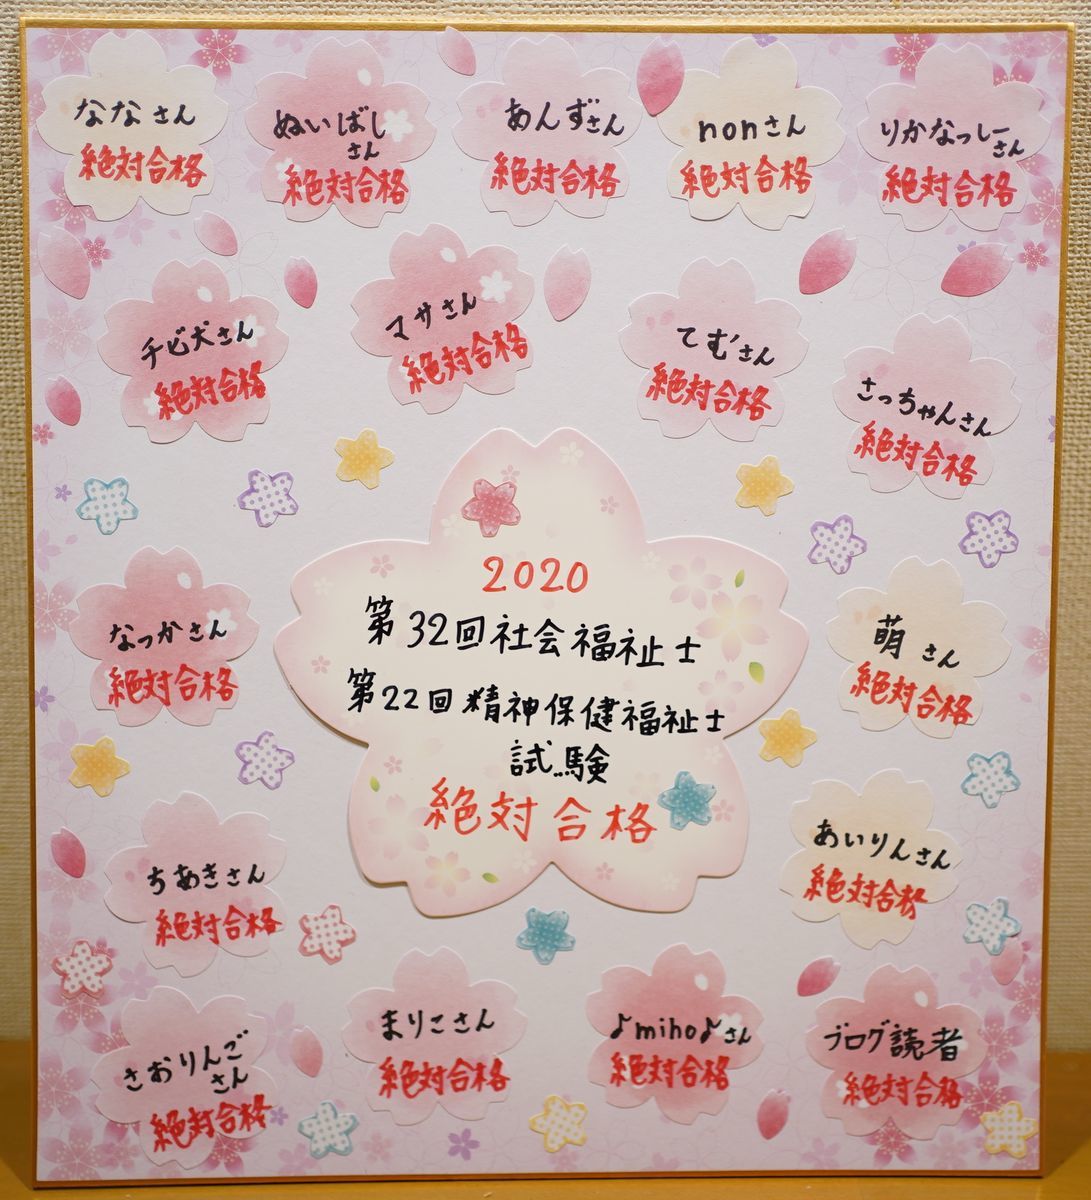 ななさん
絶対合格
ぬいばし
さん
絶対合格
あんずさん
絶対合格
nonさん
絶対合格
りかなっしー
さん
絶対合格
チビ犬さん
絶対合格
マサさん
絶対合格
てむさん
絶対合格
さっちゃんさん
絶対合格
2020
第32回社会福祉士
第22回精神保健福祉士
試験
絶対合格
なっかさん
絶対合格
萌さん
絶対合格
ちあきさん
絶対合格
あいりんさん
絶対合格
さおりんご
さん
絶対合格
まりこさん
絶対合格
♪miho♪さん
絶対合格
ブログ読者
絶対合格